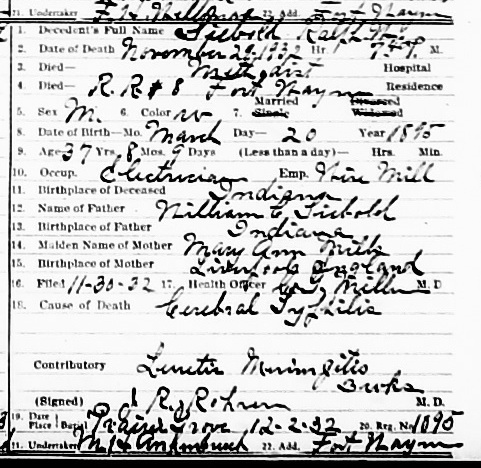 21. Undertaker 22. Add. Fort Wayne
1. Decedent's Full Name Siebold Ralph
2. Date of Death November 29, 1932 Hr. M.
3. Died— Methodist Hospital
4. Died— R.R # 8 Fort Wayne Residence
5. Sex M. 6. Color W 7. Married Single Divorced Widowed
8. Date of Birth—Mo. March Day— 20 Year 1895
9. Age 37 Yrs. 8 Mos. 9 Days (Less than a day)— Hrs. Min.
10. Occup. Electrician Emp. Wire Mill
11. Birthplace of Deceased Indiana
12. Name of Father William C Siebold
13. Birthplace of Father Indiana
14. Maiden Name of Mother Mary Ann Mills
15. Birthplace of Mother Liverpool England
16. Filed 11-30-32 17. Health Officer Miller M. D
18. Cause of Death Cerebral Syphilis
Contributory Luetic Meningitis
3 wks
(Signed) J R. Rohrer M. D.
19. Date Place Burial Prairie Grove 12-2-32 20. Reg. No 1095
21. Undertaker 22. Add. Fort Wayne